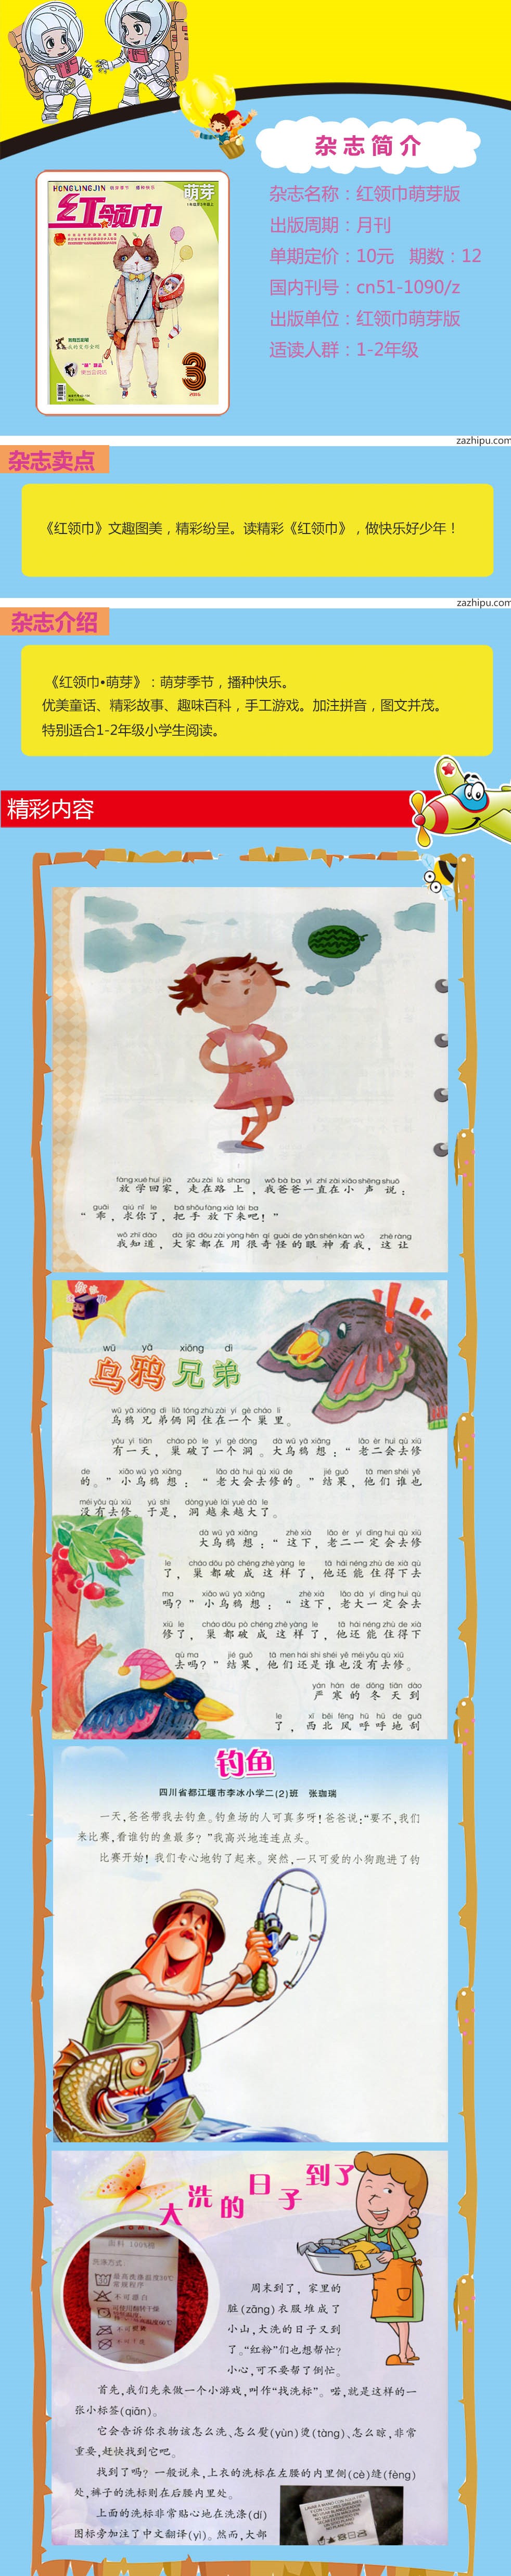 杂志简介
HONGLINGJIN
萌芽
红领巾
3
杂志名称：红领巾萌芽版
出版周期：月刊
单期定价：10元 期数：12
国内刊号：cn51-1090/z
出版单位：红领巾萌芽版
适读人群：1-2年级
zazhipu.com
杂志卖点
《红领巾》文趣图美，精彩纷呈。读精彩《红领巾》，做快乐好少年！
zazhipu.com
杂志介绍
《红领巾•萌芽》：萌芽季节，播种快乐。
优美童话、精彩故事、趣味百科，手工游戏。加注拼音，图文并茂。
特别适合1-2年级小学生阅读。
精彩内容
fàng xué huí jiā zǒu zài lù shang wǒ bà ba yì zhí zài xiǎo shēng shuō
放学回家，走在路上，我爸爸一直在小声说：
guāi qiú nǐ le bǎ shǒu fàng xià lái ba
“乖，求你了，把手放下来吧！”
wǒ zhī dào dà jiā dōu zài yòng hěn qí guài de yǎn shén kàn wǒ zhè ràng
我知道，大家都在用很奇怪的眼神看我，这让
wū yā xiōng dì
乌鸦兄弟
wū yā xiōng dì liǎ tóng zhù zài yí gè cháo li
乌鸦兄弟俩同住在一个巢里。
yǒu yì tiān cháo pò le yí gè dòng dà wū yā xiǎng lǎo èr huì qù xiū
有一天，巢破了一个洞。大乌鸦想：“老二会去修
de xiǎo wū yā xiǎng lǎo dà huì qù xiū de jié guǒ tā men shéi yě
的。”小乌鸦想：“老大会去修的。”结果，他们谁也
méi yǒu qù xiū yú shì dòng yuè lái yuè dà le
没有去修。于是，洞越来越大了。
dà wū yā xiǎng zhè xià lǎo èr yí dìng huì qù xiū
大乌鸦想：“这下，老二一定会去修
le cháo dōu pò chéng zhè yàng le tā hái néng zhù de xià qù
了，巢都破成这样了，他还能住得下去
ma xiǎo wū yā xiǎng zhè xià lǎo dà yí dìng huì qù
吗？”小乌鸦想：“这下，老大一定会去
xiū le cháo dōu pò chéng zhè yàng le tā hái néng zhù de xià
修了，巢都破成这样了，他还能住得下
qù ma jié guǒ tā men hái shi shéi yě méi yǒu qù xiū
去吗？”结果，他们还是谁也没有去修。
yán hán de dōng tiān dào
严寒的冬天到
le xī běi fēng hū hū de guā
了，西北风呼呼地刮
钓鱼
四川省都江堰市李冰小学二(2)班 张珈瑞
一天，爸爸带我去钓鱼。钓鱼场的人可真多呀！爸爸说：“要不，我们
来比赛，看谁钓的鱼最多？”我高兴地连连点头。
比赛开始！我们专心地钓了起来。突然，一只可爱的小狗跑进了钓
大洗的日子到了
面料 100%棉
洗涤方式
最高洗涤温度30℃
常规程序
不可漂白
不可干洗
周末到了，家里的
脏(zāng)衣服堆成了
小山，大洗的日子又到
了。“红粉”们也想帮忙？
小心，可不要帮了倒忙。
首先，我们先来做一个小游戏，叫作“找洗标”。喏，就是这样的一
张小标签(qiān)。
它会告诉你衣物该怎么洗、怎么熨(yùn)烫(tàng)、怎么晾，非常
重要，赶快找到它吧。
找到了吗？一般说来，上衣的洗标在左腰的内里侧(cè)缝(fèng)
处，裤子的洗标则在后腰内里处。
上面的洗标非常贴心地在洗涤(dí)
图标旁加注了中文翻译(yì)。然而，大部